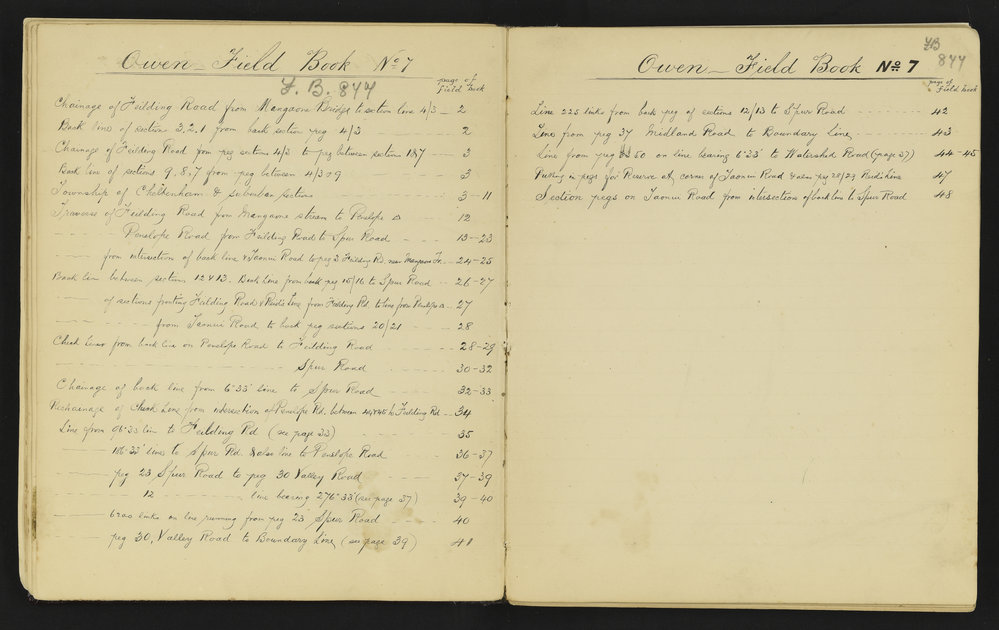 Owen — Field Book No 7
F. B. 844
page of
Field book
Chainage of Feilding Road from Mangaone Bridge to section line 4/3 — 2
Back line of section 3, 2, 1 from back section peg 4/3 2
Chainage of Feilding Road from peg sections 4/3 to peg between sections 1&7 — 3
Back line of sections 9, 8, 7 from peg between 4/3 & 9 3
Township of Cheltenham & suburban sections 3-11
Traverse of Feilding Road from Mangaone stream to Penelope △ 12
Penelope Road from Feilding Road to Spur Road 13-23
from intersection of back line & Taonui Road to peg 2 Feilding Rd. near Mangaone 24-25
Back line between sections 12 & 13. Back line from back peg 15/16 to Spur Road 26-27
of sections fronting Feilding Road & Reid's Line from Feilding Rd. to line from Penelope △ 27
from Taonui Road to back peg sections 20/21 28
Check lines from back line on Penelope Road to Feilding Road 28-29
Spur Road 30-32
Chainage of back line from 6°33' line to Spur Road 32-33
Rechainage of Check Line from intersection of Penelope Rd. between to Feilding Rd 34
Line from 96°33 line to Feilding Rd (see page 33) 35
186°33' lines to Spur Rd. & also line to Penelope Road 36-37
peg 23 Spur Road to peg 30 Valley Road 37-39
12 line bearing 276°33' (see page 37) 39-40
links on line running from peg 23 Spur Road 40
peg 30, Valley Road to Boundary Line (see page 39) 41
FB
844
Owen — Field Book No 7
page of
Field book
Line 225 links from back peg of sections 12/13 to Spur Road 42
Line from peg 37 Midland Road to Boundary Line 43
Line from peg 50 on line bearing 6°33' to Watershed Road (page 37) 44-45
Putting in pegs for Reserve at corner of Taonui Road & also peg 28/29 Reids Line 47
Section pegs on Taonui Road from intersection of back line to Spur Road 48